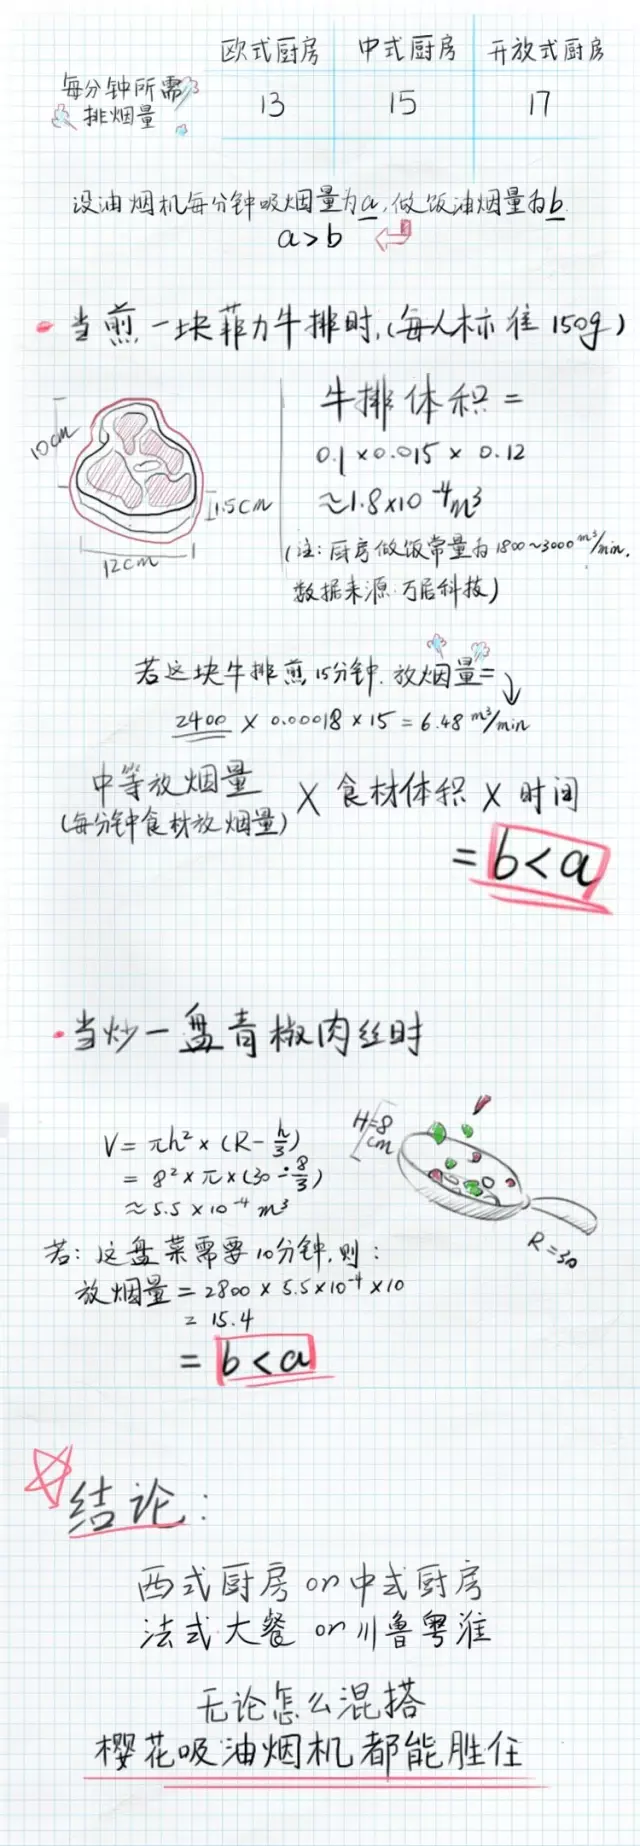 欧式厨房 中式厨房 开放式厨房
每分钟所需
排烟量
13 15 17
设油烟机每分钟吸烟量为a,做饭油烟量为b.
a>b
·当煎一块菲力牛排时,(每人标准150g)
10cm
1.5cm
12cm
牛排体积=
0.1×0.015×0.12
≈1.8×10⁻⁴m³
(注:厨房做饭常量为1800~3000m³/min,
数据来源:万居科技)
若这块牛排煎15分钟.放烟量=
2400×0.00018×15=6.48m³/min
中等放烟量
(每分钟食材放烟量)
×食材体积×时间
=b<a
·当炒一盘青椒肉丝时
V=πh²×(R-h/3)
=8²×π×(30-8/3)
≈5.5×10⁻⁴m³
H=8
cm
R=30
若:这盘菜需要10分钟,则:
放烟量=2800×5.5×10⁻⁴×10
=15.4
=b<a
结论:
西式厨房or中式厨房
法式大餐or川鲁粤淮
无论怎么混搭
樱花吸油烟机都能胜任